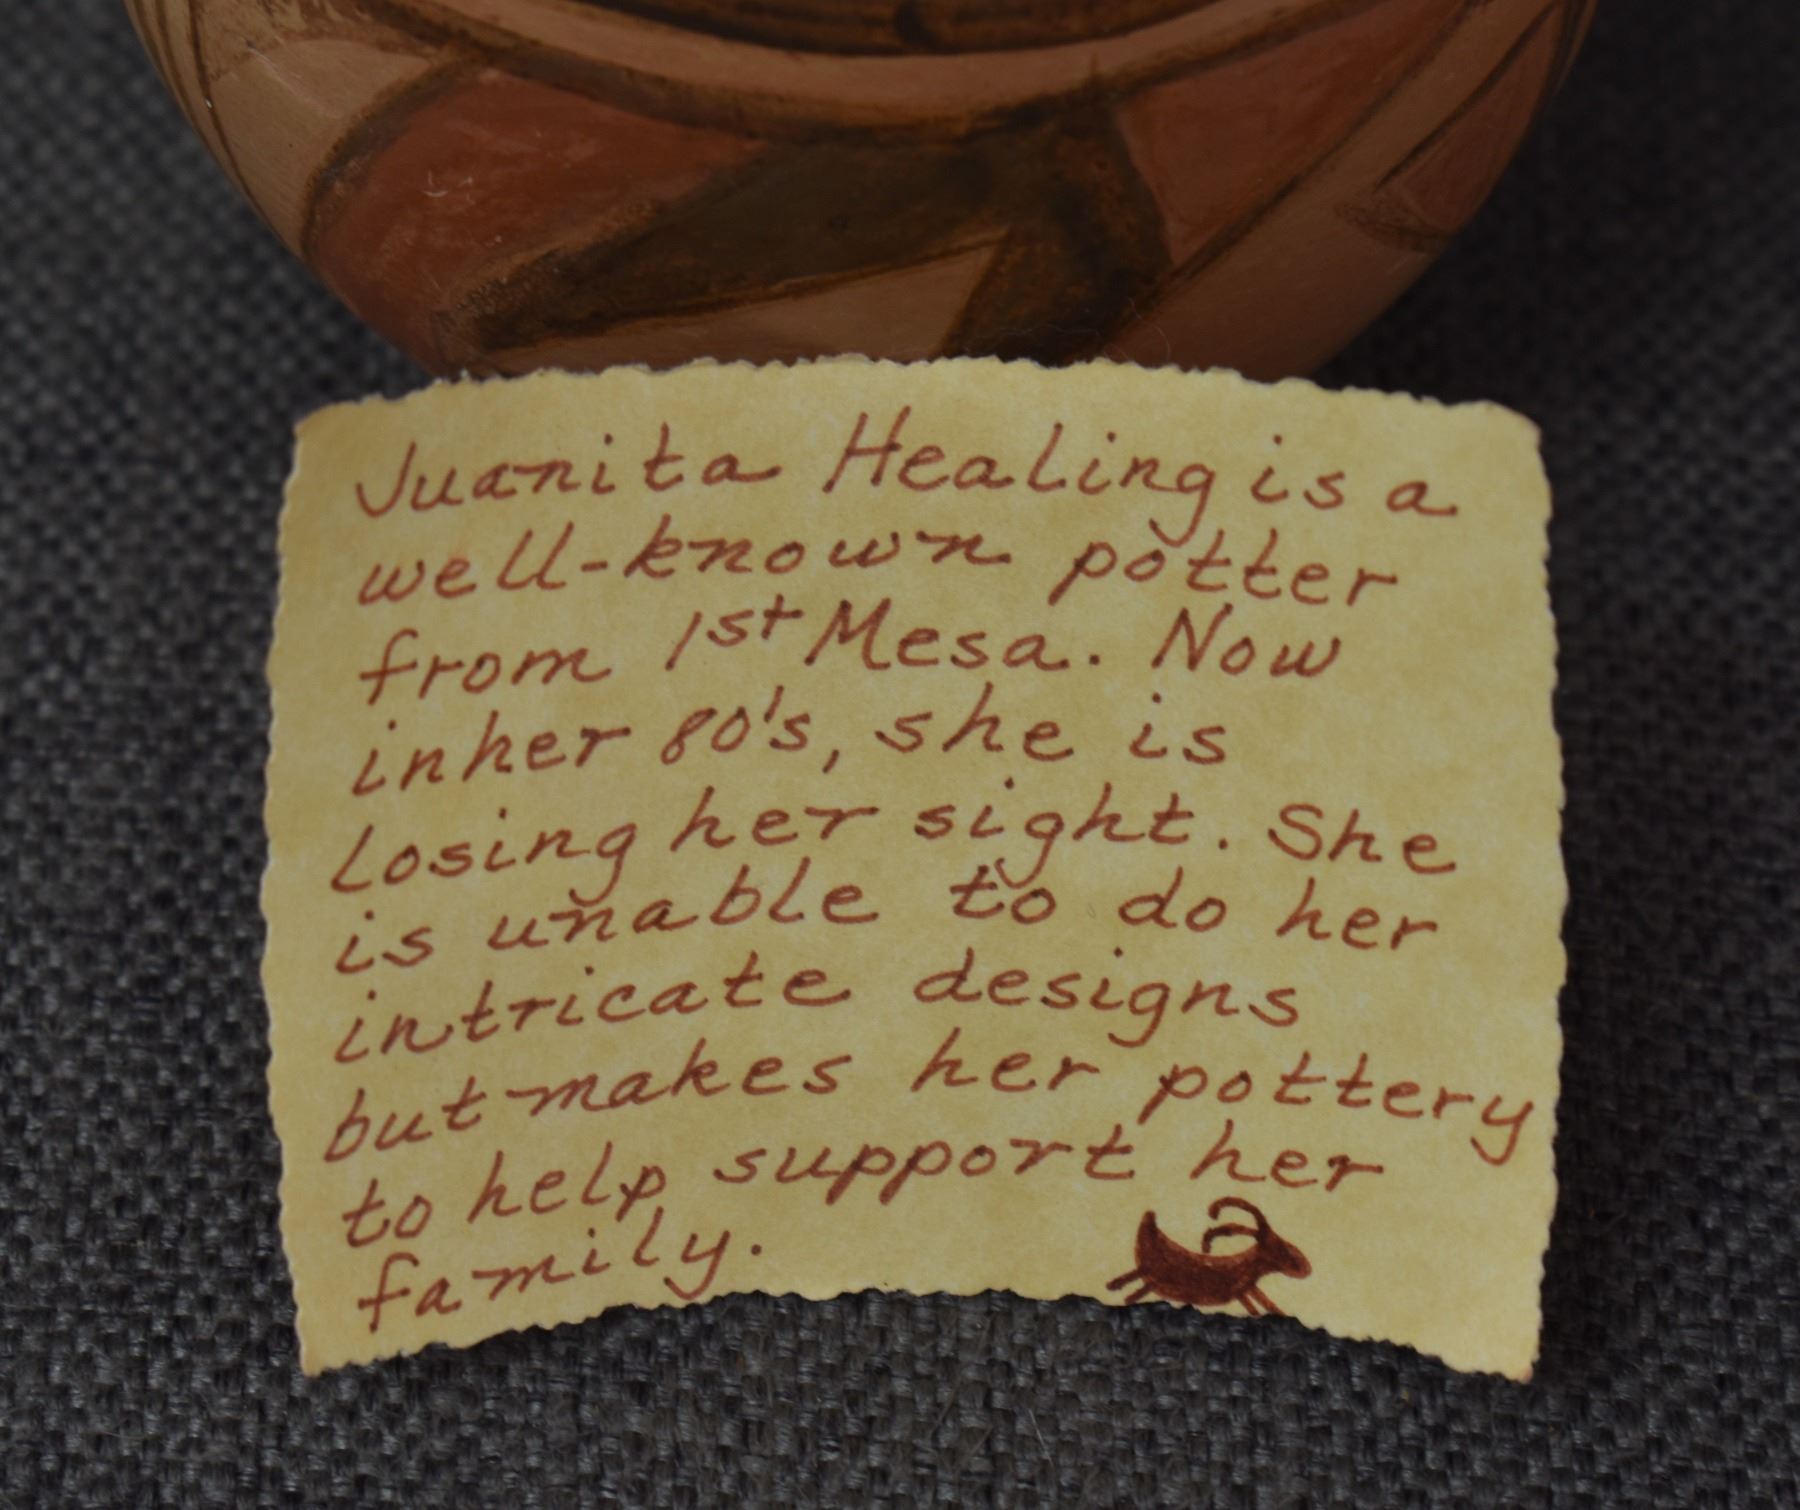 Juanita Healing is a
well-known potter
from 1st Mesa. Now
in her 80's, she is
losing her sight. She
is unable to do her
intricate designs
but makes her pottery
to help support her
family.